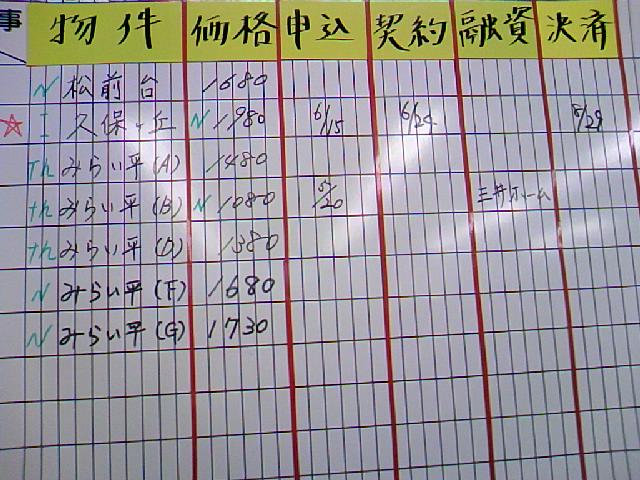 事 物件 価格 申込 契約 融資 決済
N 松前台 1680
I 久保ヶ丘 N 1980 6/15 6/24 8/29
Th みらい平(A) 1480
th みらい平(B) N 1080 5/20 三井ホーム
th みらい平(D) 1380
N みらい平(F) 1680
N みらい平(G) 1730